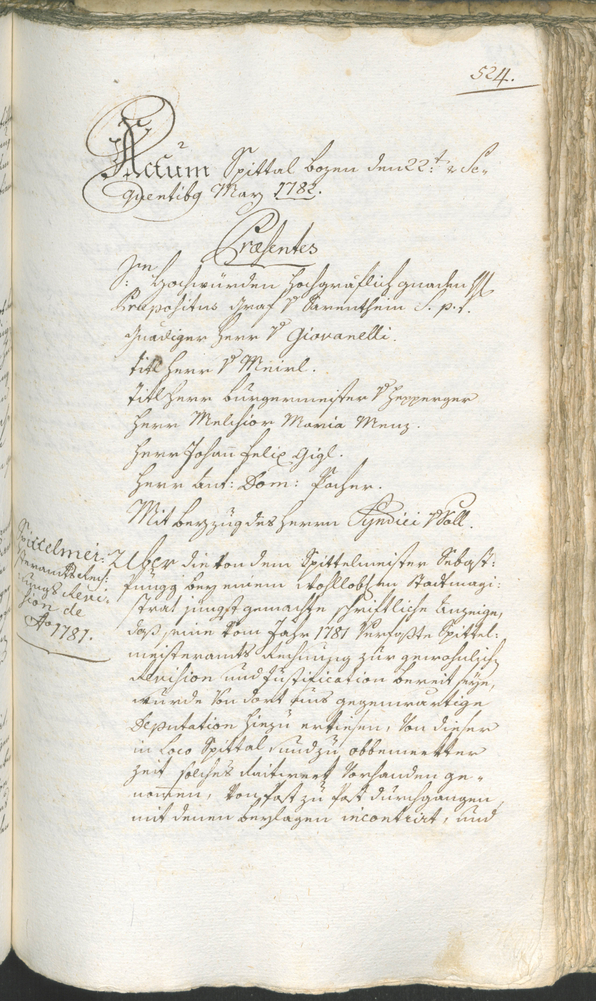 524.
Actum Spittal bozen den 22t. & Se-
quentibg May 1782.
Præsentes
Hochwürden Hochgräflich gnaden H
Præpositus Graf v Sarenthein S. p. t.
Gnädiger Herr v Giovanelli.
titl Herr v Meirl.
titl Herr burgermeister v Hepperger
Herr Melchior Maria Menz.
Herr Johan̄ Felix Gigl.
Herr Ant: Dom: Pacher.
Mit beyzug des Herrn Syndici v Voll.
Spittelmei-
steramts Rech:
nungs Revi-
sion de
Ao 1781.
Uber die von dem Spittelmeister Sebast:
Füngg bey einem wohllobl:en Stadtmagi:
strat jüngst gemachte schriftliche Anzeige,
daß seine vom Jahr 1781 verfaßte Spittel:
meisteramts Rechnung zur gewohnlich:
Revision und Justification bereit seye,
wurde von dort aus gegenwärtige
Deputation hiezu erkiesen, von dieser
in Loco Spittal, und zu obbemerkter
Zeit solches Raitwerk vorhanden ge-
nom̄en, von Post zu Post durchgangen,
mit denen beylagen incontrirt, und